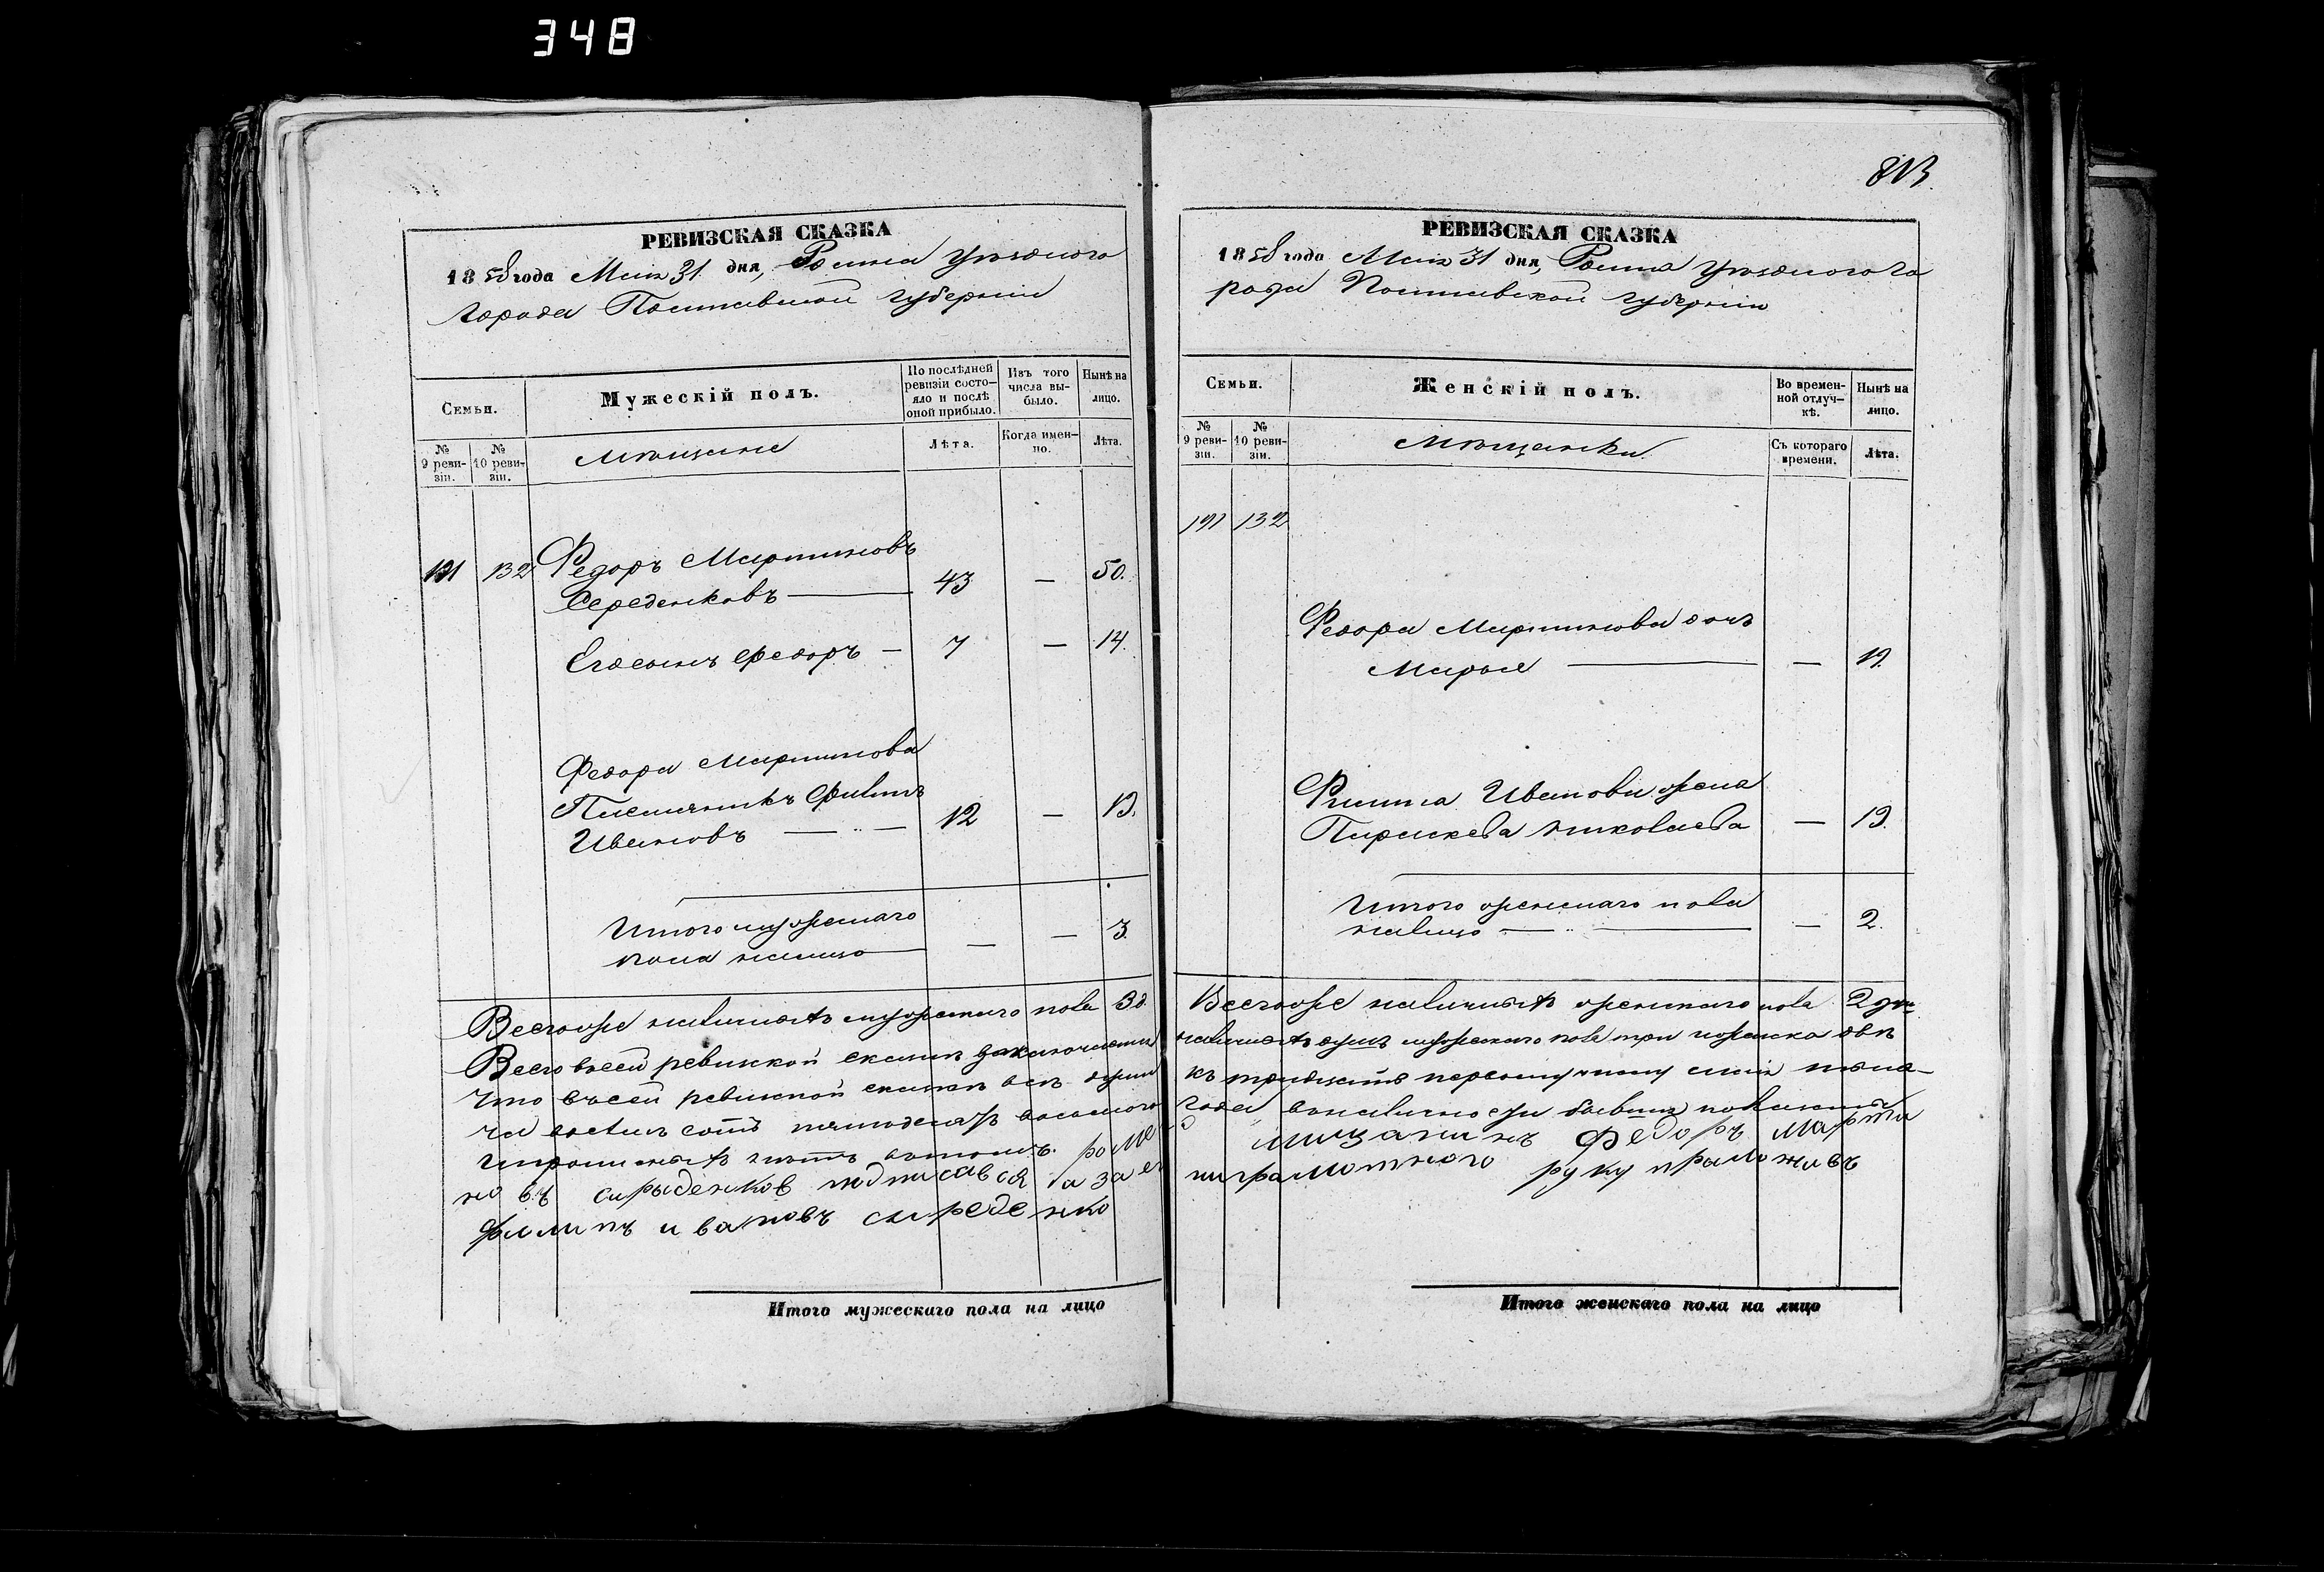 348
РЕВИЗСКАЯ СКАЗКА
1858 года Маія 31 дня, Ромна Уѣзднаго
города Полтавской губерніи
Семьи.
Мужескій полъ.
По послѣдней ревизіи состо-яло и послѣ оной прибыло.
Изъ того числа вы-было.
Нынѣ на лицо.
№ 9 реви-зіи.
№ 10 реви-зіи.
Мѣщане
Лѣта.
Когда имен-но.
Лѣта.
121 132 Федоръ Мартиновъ
Середенковъ — 43 — 50.
Его сынъ Федоръ — 7 — 14.
Федора Мартинова
Племянникъ Филипъ
Ивановъ — 12 — 19.
Итого мужескаго
пола налицо — — 3.
Всегоже наличныхъ мужескаго пола 3 д.
Всего въсей ревизской сказки заключается
что въсей ревизской сказкѣ всѣ души
восемь сотъ пятдесятъ восьмого
роме
но въ сирыденков подписався а за ег
филипъ ивановъ сиреденко
Итого мужескаго пола на лицо
813
РЕВИЗСКАЯ СКАЗКА
1858 года Маія 31 дня, Ромна Уѣзднаго го
рода Полтавской губерніи
Семьи.
Женскій полъ.
Во времен-ной отлуч-кѣ.
Нынѣ на лицо.
№ 9 реви-зіи.
№ 10 реви-зіи.
Мѣщанки
Съ котораго времени.
Лѣта.
121 132
Федора Мартинова дочь
Марья — — 19.
Филипа Иванова жена
Параскева Николаева — 19.
Итого женскаго пола
налицо — — 2.
Всегоже наличныхъ женскаго пола 2 ду
наличныхъ душъ мужескаго пола три иженска двѣ
къ тридцать первому маія тыся-
года
мищанинъ Федоръ Марти
ниграмотного руку праложивъ
Итого женскаго пола на лицо